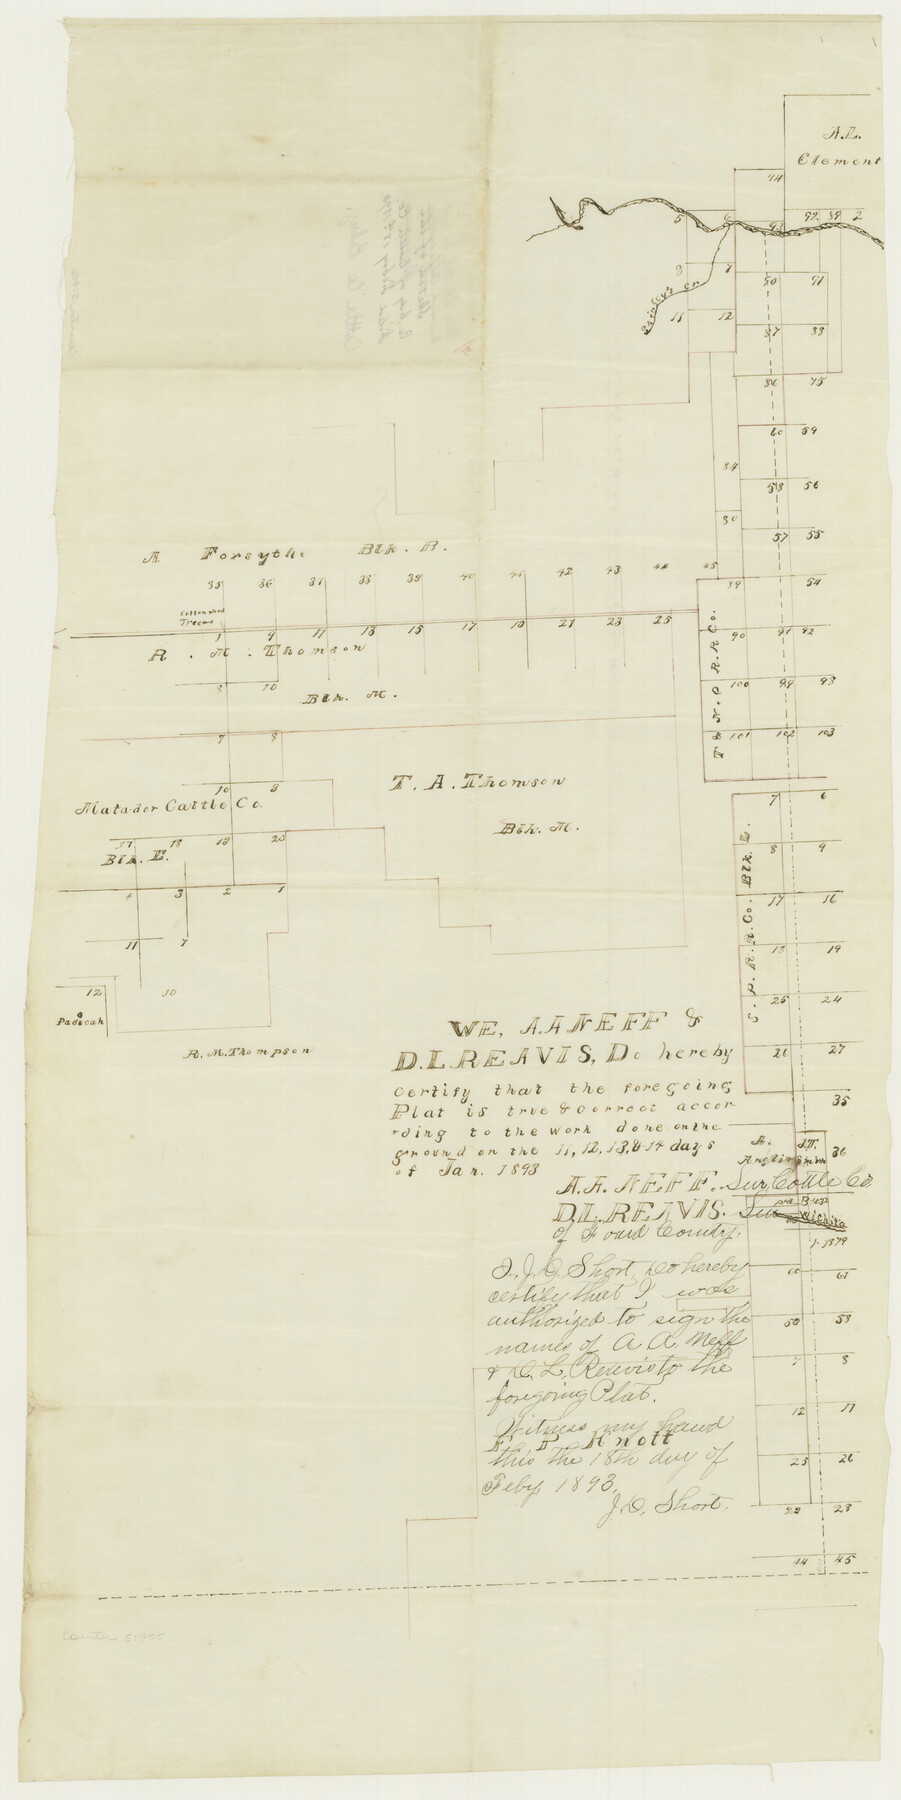 A. L.
Clement
94
5 6 93 92 89 2
8 7 90 91
11 12 87 88
86 75
60 59
84 58 56
80 57 55
A Forsythe Blk. B.
35 36 37 38 39 40 41 42 43 44 45 79 54
Cottonwood
Trees
1 9 11 13 15 17 19 21 23 25
90 91 92
R. M. Thomson
3 10
Blk. M.
T & N. O R. R Co.
100 99 93
7 8
101 102 103
T. A. Thomson
Blk. M.
10 8
Matador Cattle Co.
7 6
17 18 19 20
Blk. E.
8 9
S. P. R. R. Co. Blk. D.
4 3 2 1
17 16
11 7
18 19
12 10
25 24
Paducah
R. M. Thompson
26 27
WE, A. A NEFF &
D. L REAVIS, Do hereby
certify that the foregoing
Plat is true & correct accor
-ding to the work done on the
ground on the 11, 12, 13, & 14 days
of Jan. 1893
35
J.T.
36
A. A. NEFF. Sur, Cottle Co
D. L. REAVIS. Sur
Wichita
of Foard County.
1-1879
I, J. D. Short, do hereby
certify that I was
authorized to sign the
names of A A, Neff
& D. L, Reavis to the
foregoing Plat.
Witness my hand
this the 18th day of
Feby 1893.
J. D, Short.
Knott
60 61
50 53
7 8
12 17
25 26
29 28
44 45
Counter 51955